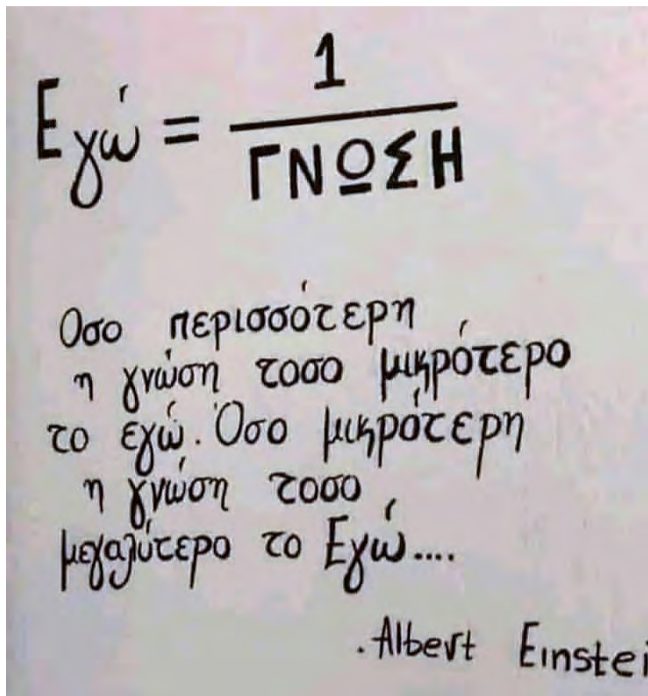 Εγώ = 1
ΓΝΩΣΗ
Οσο περισσότερη
η γνώση τοσο μικρότερο
το εγώ. Όσο μικρότερη
η γνώση τοσο
μεγαλύτερο το Εγώ....
. Albert Einstei